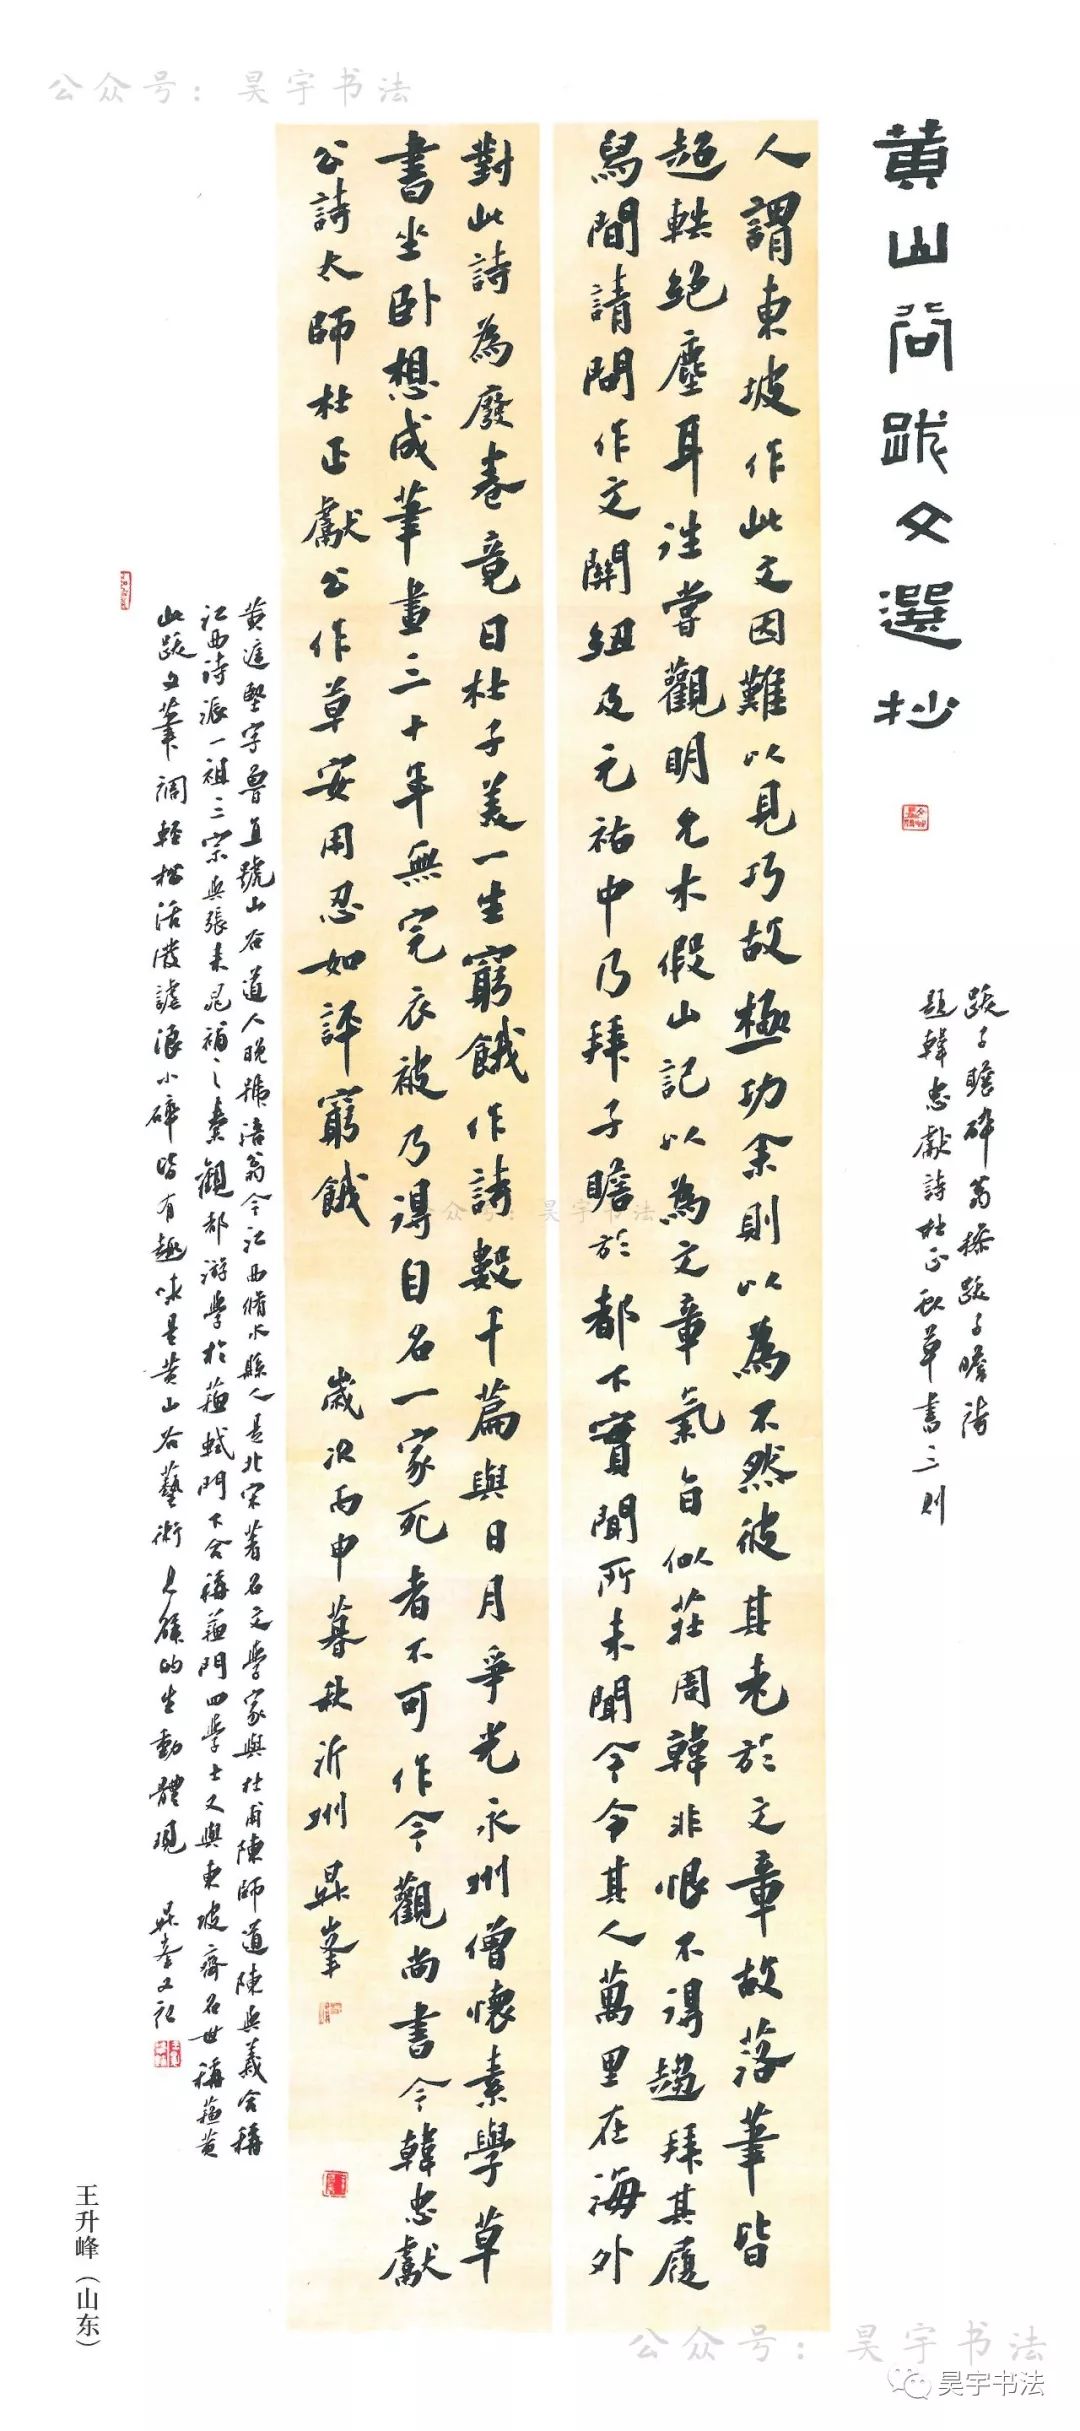 公众号：昊宇书法
黄山谷跋文選抄
跋子瞻醉翁操跋子瞻詩
題韓忠獻詩杜正獻草書三則
人謂東坡作此文因難以見巧故極功余則以為不然彼其老於文章故落筆皆
超軼絕塵耳往嘗觀明允木假山記以為文章氣旨似莊周韓非恨不得趨拜其履
舄間請問作文關紐及元祐中乃拜子瞻於都下實聞所未聞今令其人萬里在海外
對此詩為廢卷竟日杜子美一生窮餓作詩數千篇與日月爭光永州僧懷素學草
書坐卧想成筆畫三十年無完衣被乃得自名一家死者不可作今觀尚書令韓忠獻
公詩太師杜正獻公作草安用忍如評窮餓
歲次丙申暮秋沂州昇峯
黄庭堅字魯直號山谷道人晚號涪翁今江西脩水縣人是北宋著名文學家與杜甫陳師道陳與義合稱
江西詩派一祖三宗與張耒晁補之秦觀都游學於蘇軾門下合稱蘇門四學士又與東坡齊名世稱蘇黄
此跋文筆調輕松活潑謔浪小碎皆有趣味是黄山谷藝術的生動體現
昇峯又記
公众号：昊宇书法
王升峰（山东）
公众号：昊宇书法
昊宇书法